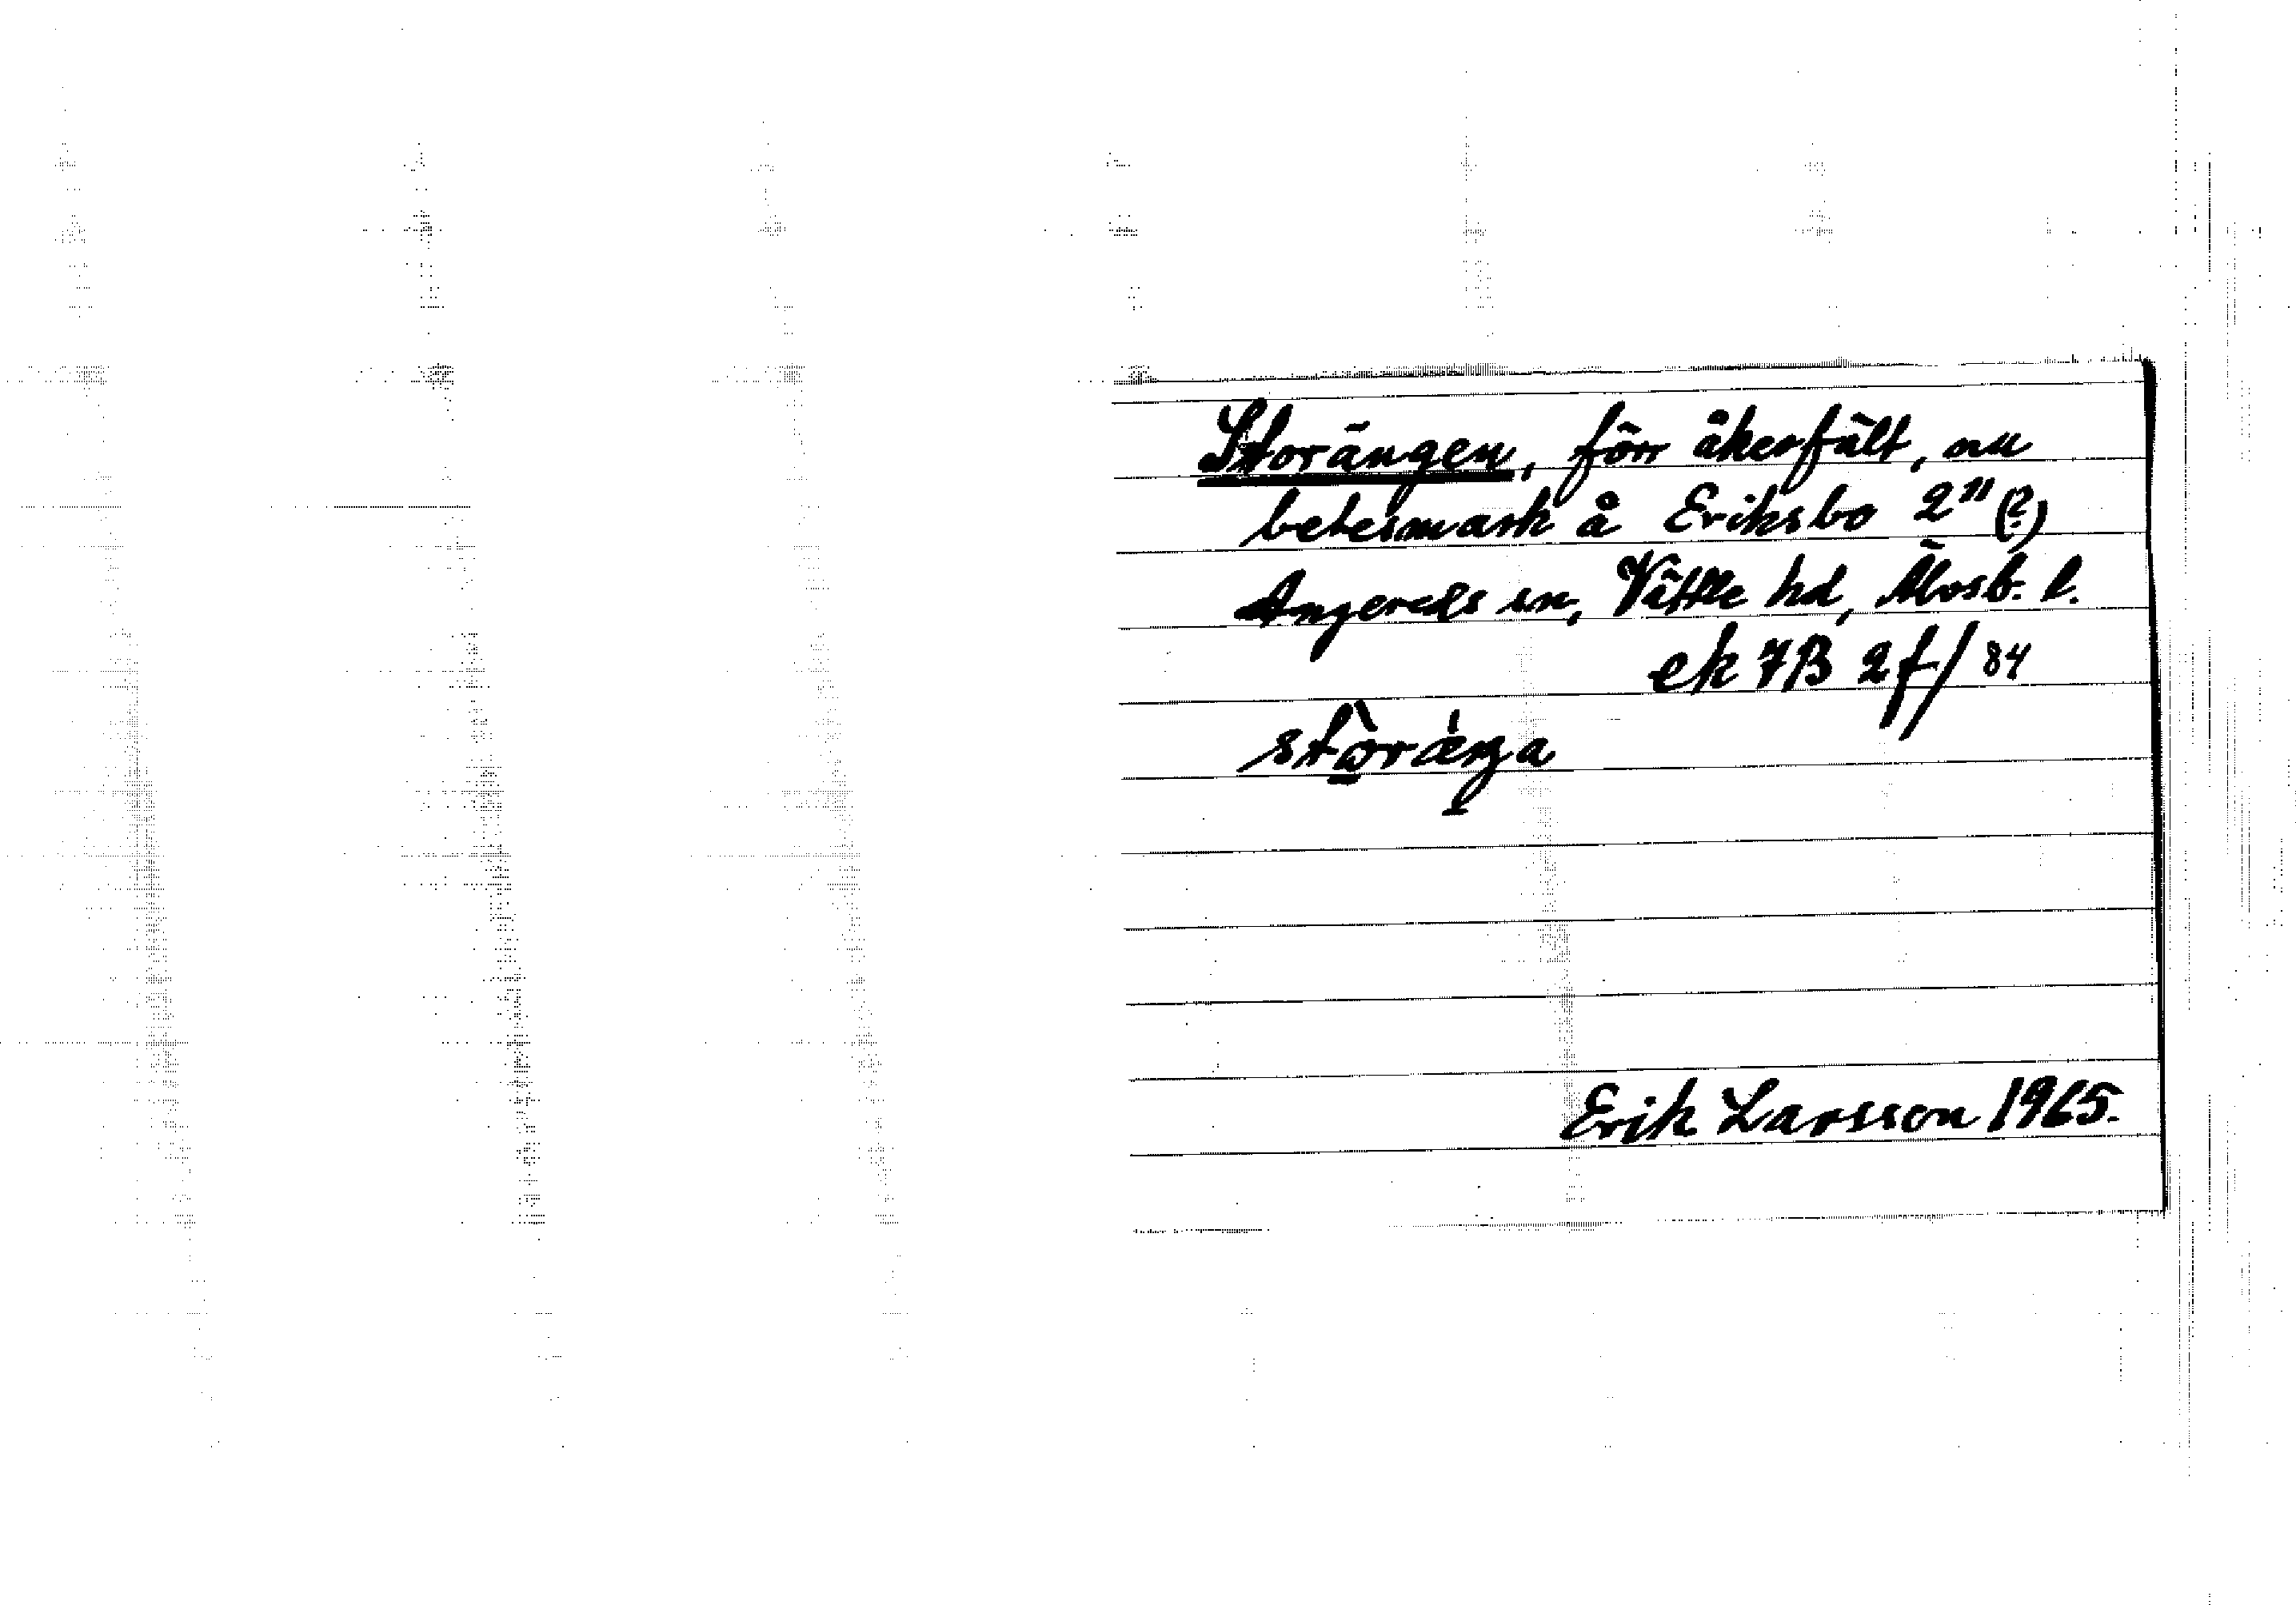 Storängen, förr åkerfält, nu
betesmark å Eriksbo 2¹¹ (?)
Angereds sn, Vättle hd, Älvsb. l.
ek 7B 2f/84
Erik Larsson 1965.